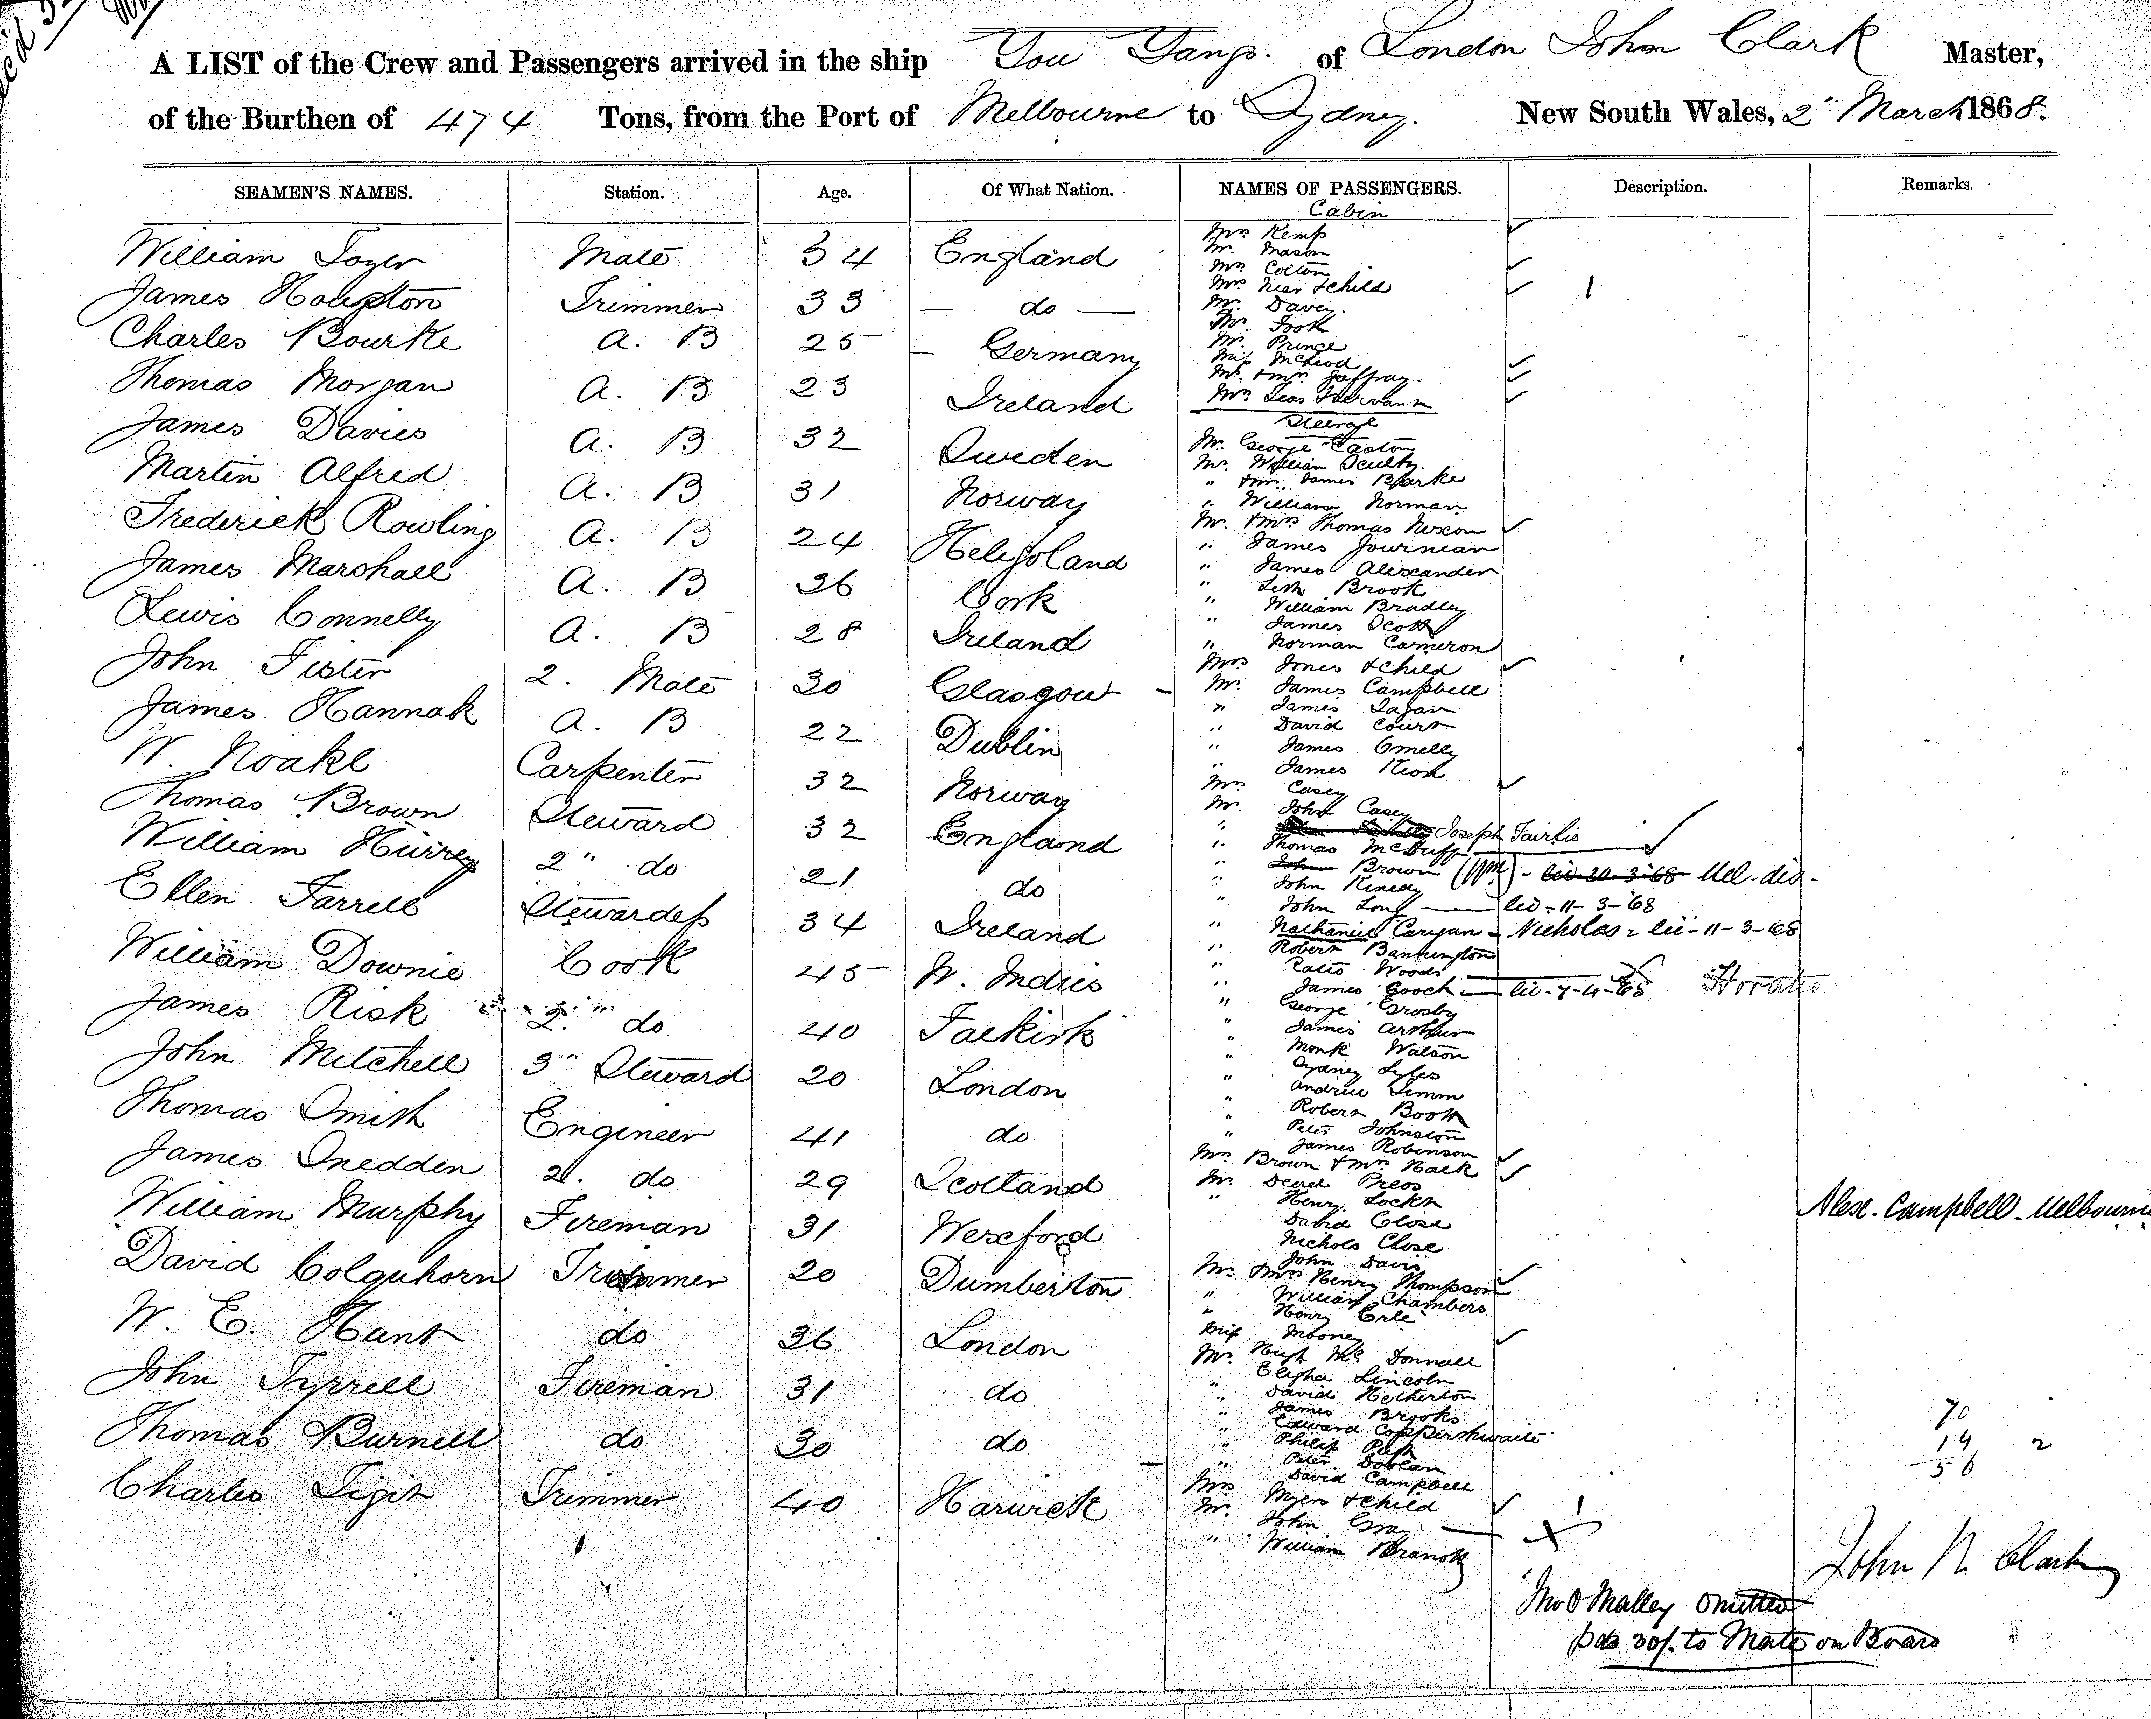 A LIST of the Crew and Passengers arrived in the ship You Yangs. of London John Clark Master,
of the Burthen of 474 Tons, from the Port of Melbourne to Sydney. New South Wales, 2" March 1868.
SEAMEN'S NAMES. Station. Age. Of What Nation. NAMES OF PASSENGERS. Description. Remarks.
William Tozer Mate 34 England
James Houston Trimmer 33 do
Charles Bourke A. B 25 Germany
Thomas Morgan A. B 23 Ireland
James Davies A. B 32 Sweden
Martin Alfred A. B 31 Norway
Frederick Rowling A. B 24 Heligoland
James Marshall A. B 36 Cork
Lewis Connelly A. B 28 Ireland
John Fister 2. Mate 30 Glasgow
James Hannah A. B 22 Dublin
W. Noake Carpenter 32 Norway
Thomas Brown Steward 32 England
William Hurrey 2" do 21 do
Ellen Farrell Stewardess 34 Ireland
William Downie Cook 45 W. Indies
James Risk 2" do 40 Falkirk
John Mitchell 3" Steward 20 London
Thomas Smith Engineer 41 do
James Snedden 2. do 29 Scotland
William Murphy Fireman 31 Wexford
David Colquhorn Trimmer 20 Dumberton
W. E. Hunt do 36 London
John Tyrrell Fireman 31 do
Thomas Burnell do 30 do
Charles Trimmer 40 Harwich
Cabin
Mrs Kemp
Mr Mason
Mrs Cotton
Mrs & child 1
Mr. Davey.
Mr.
Mr. Prince
Miss McLeod
Mr. & Mrs Jaffray.
Mrs & Servant
Steerage
Mr. George Easton
Mr. William
" & Mrs James Burke
" William Norman
Mr. & Mrs Thomas Nixon
" James
" James Alexander
" Seth Brook
" William Bradley
" James Scott
" Norman Cameron
Mrs Jones & child
Mr. James Campbell
" James
" David Court
" James
" James
Mrs Casey
Mr. John Casey
" Joseph Fairlie
" Thomas McDuff
" John Brown (Wm) - lic 20-3-68 Mel. dis.
" John Kinedy
" John Long lic - 11-3-68
" Nathaniel Carigan - Nicholas - lic - 11-3-68
" Robert Bannington
" Ratio Woods Horatio
" James Gooch lic - 7-4-68
" George Crosby
" James Arthur
" Monk Watson
" Sydney
" Andrew Simm
" Robert Booth
" Peter Johnston
" James Robinson
Mrs Brown & Mrs
Mr.
" Henry
David Close
Nichols Close
John Davis
Mr. & Mrs Henry Thompson
" William Chambers
" Henry
Miss Mooney
Mr. Hugh Mc Donnall
" Lincoln
" David Hetherton
" James Brooks
" Edward Coppershwaite
" Philip
" Peter
" David Campbell
Mrs Myers & child 1
Mr. John
" William
Alex. Campbell - Melbourne
70
14 2
56
John N Clark
Jno O Malley omitted
pd 30/. to Mate on Board